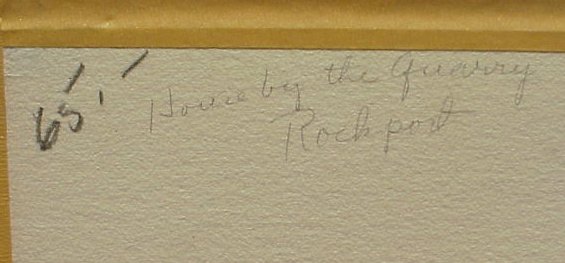 65
House by the Quarry
Rockport